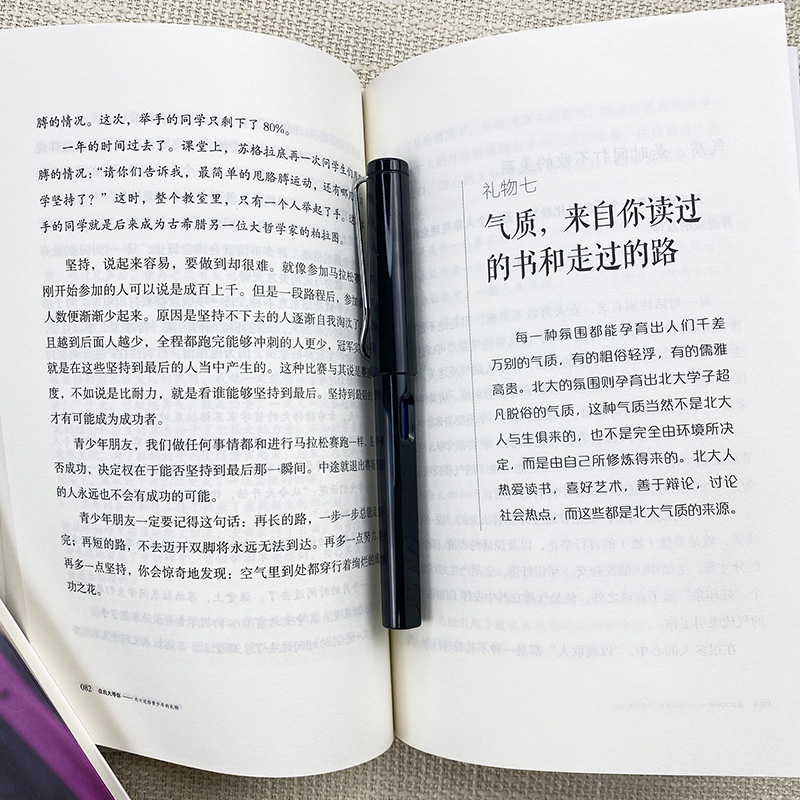 膊的情况。这次，举手的同学只剩下了80%。
一年的时间过去了。课堂上，苏格拉底再一次问学生们
膊的情况：“请你们告诉我，最简单的甩胳膊运动，还有哪
学坚持了？”这时，整个教室里，只有一个人举起了手。
手的同学就是后来成为古希腊另一位大哲学家的柏拉图。
坚持，说起来容易，要做到却很难。就像参加马拉松赛
刚开始参加的人可以说是成百上千。但是一段路程后，参加
人数便渐渐少起来。原因是坚持不下去的人逐渐自我淘汰了
且越到后面人越少，全程都跑完能够冲刺的人更少，冠军
就是在这些坚持到最后的人当中产生的。这种比赛与其说是
度，不如说是比耐力，就是看谁能够坚持到最后。坚持到最
才有可能成为成功者。
青少年朋友，我们做任何事情都和进行马拉松赛跑一样，是
否成功，决定权在于能否坚持到最后那一瞬间。中途就退出赛
的人永远也不会有成功的可能。
青少年朋友一定要记得这句话：再长的路，一步一步总能走
完；再短的路，不去迈开双脚将永远无法到达。再多一点努力，
再多一点坚持，你会惊奇地发现：空气里到处都穿行着绚烂的成
功之花。
082 在北大等你——北大送给青少年的礼物
礼物七
气质，来自你读过
的书和走过的路
每一种氛围都能孕育出人们千差
万别的气质，有的粗俗轻浮，有的儒雅
高贵。北大的氛围则孕育出北大学子超
凡脱俗的气质，这种气质当然不是北大
人与生俱来的，也不是完全由环境所决
定，而是由自己所修炼得来的。北大人
热爱读书，喜好艺术，善于辩论，讨论
社会热点，而这些都是北大气质的来源。